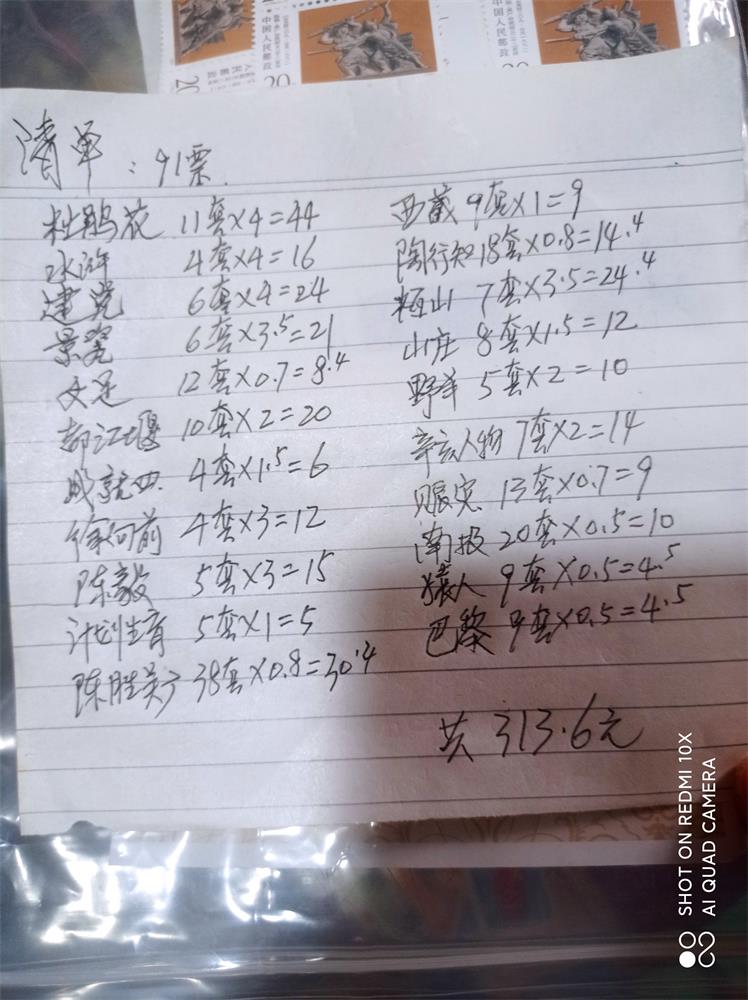 中国人民邮政
中国人民邮政
20
20
清单：91票
杜鹃花 11套×4=44
水浒 4套×4=16
建党 6套×4=24
景瓷 6套×3.5=21
文足 12套×0.7=8.4
都江堰 10套×2=20
成就四 4套×1.5=6
徐向前 4套×3=12
陈毅 5套×3=15
计划生育 5套×1=5
陈胜吴广 38套×0.8=30.4
西藏 9套×1=9
陶行知 18套×0.8=14.4
恒山 7套×3.5=24.4
山庄 8套×1.5=12
野羊 5套×2=10
辛亥人物 7套×2=14
赈灾 13套×0.7=9
南极 20套×0.5=10
猿人 9套×0.5=4.5
巴黎 9套×0.5=4.5
共 313.6元
SHOT ON REDMI 10X
AI QUAD CAMERA